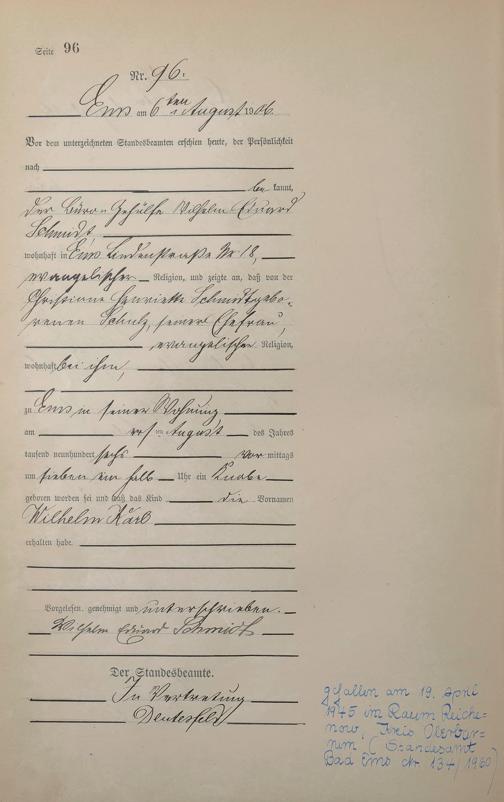 Seite 96
Nr. 96.
Ems am 6ten August 1906.
Vor dem unterzeichneten Standesbeamten erschien heute, der Persönlichkeit
nach
be kannt,
der Büro-Gehülfe Wilhelm Eduard
Schmidt
wohnhaft in Ems Lindenstraße Nr 18,
evangelischer Religion, und zeigte an, daß von der
Christiane Henriette Schmidt gebo-
renen Schulz, seiner Ehefrau,
evangelischer Religion,
wohnhaft bei ihm,
zu Ems in seiner Wohnung
am ersten August des Jahres
tausend neunhundert sechs vor mittags
um sieben ein halb Uhr ein Knabe
geboren worden sei und daß das Kind die Vornamen
Wilhelm Karl
erhalten habe.
Vorgelesen, genehmigt und unterschrieben.
Wilhelm Eduard Schmidt
Der Standesbeamte.
In Vertretung
gefallen am 19. April
1945 im Raum Reiche-
now, Kreis Oberbar-
nim (Standesamt
Bad Ems Nr. 134/1960)